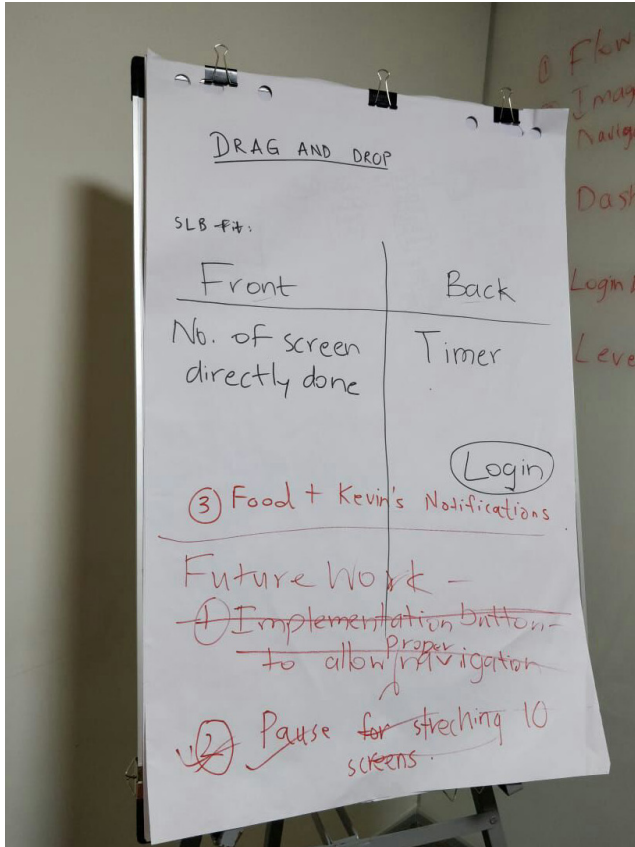 DRAG AND DROP
SLB fit:
Front
Back
No. of screen
directly done
Timer
Login
③ Food + Kevin's Notifications
Future Work -
① Implementation button
proper
to allow navigation
② Pause for streching 10
screens.
① Flow
Imag
Navig
Dash
Login
Leve